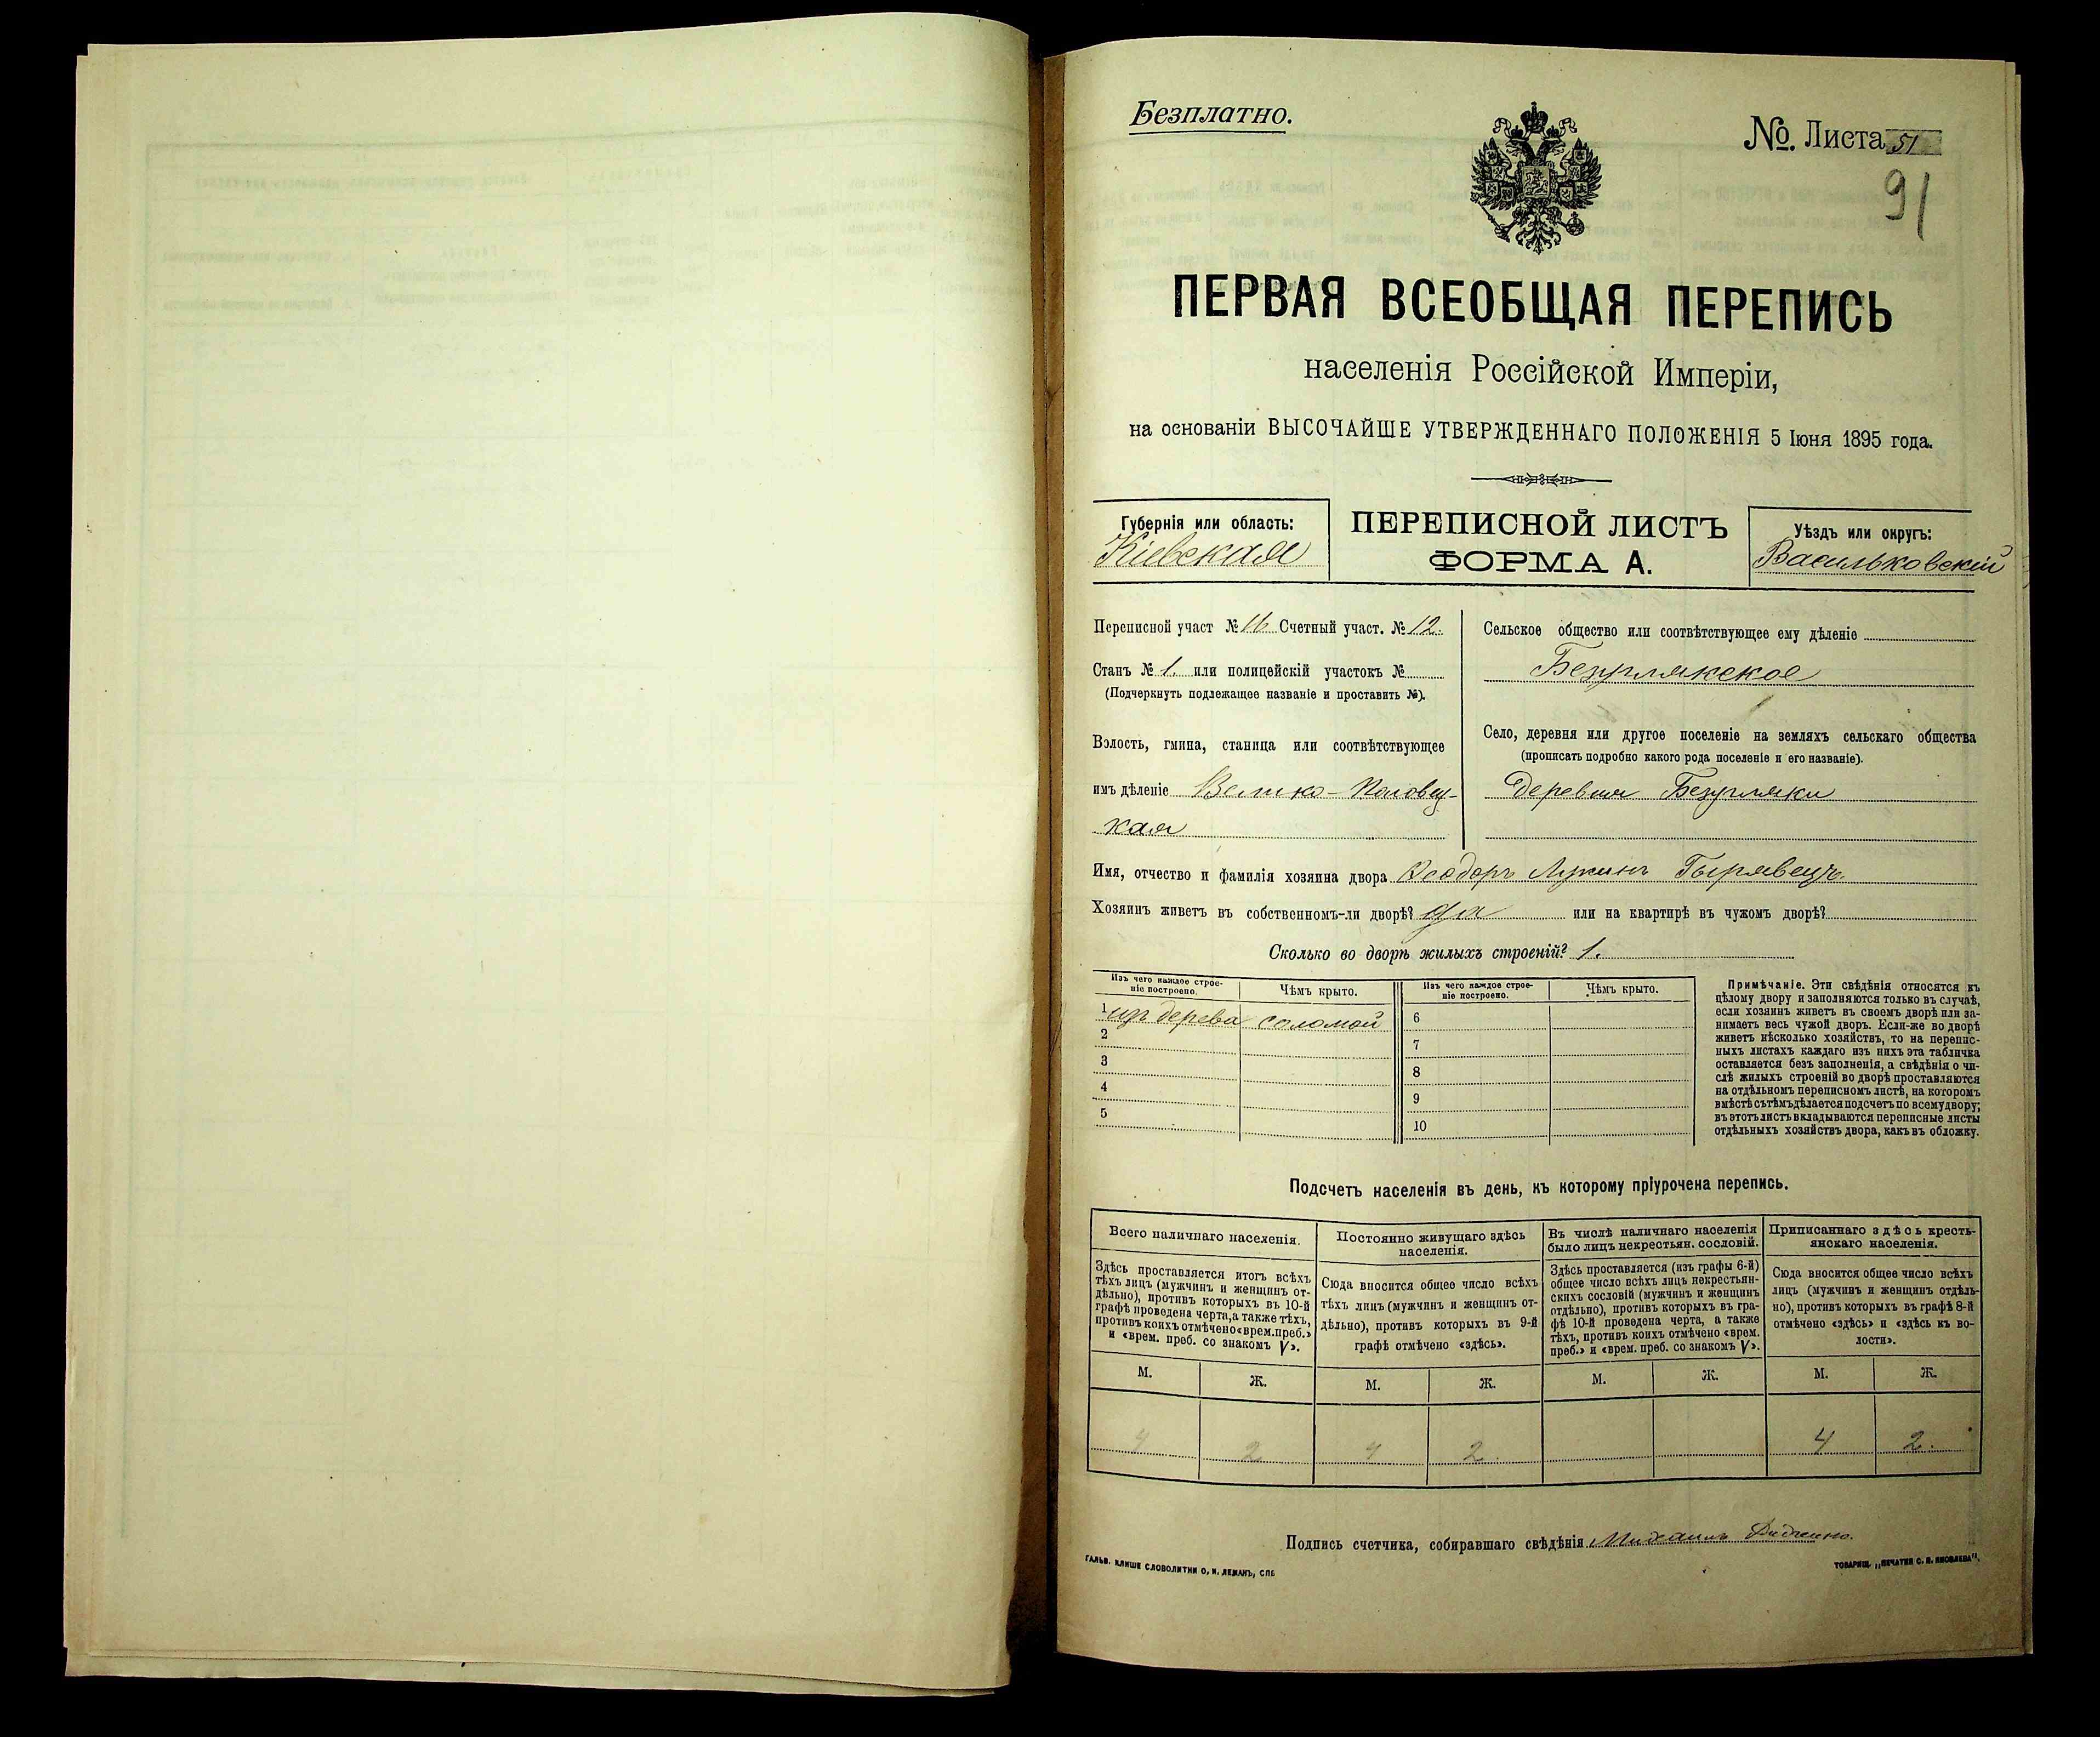 Безплатно.
№. Листа 51
91
ПЕРВАЯ ВСЕОБЩАЯ ПЕРЕПИСЬ
населенія Россійской Имперіи,
на основаніи ВЫСОЧАЙШЕ УТВЕРЖДЕННАГО ПОЛОЖЕНІЯ 5 Іюня 1895 года.
Губернія или область:
Кіевская
ПЕРЕПИСНОЙ ЛИСТЪ
ФОРМА А.
Уѣздъ или округъ:
Васильковскій
Переписной участ № 16 Счетный участ. № 12.
Станъ № 1. или полицейскій участокъ №
(Подчеркнуть подлежащее названіе и проставить №).
Волость, гмина, станица или соотвѣтствующее
имъ дѣленіе Велико-Половец-
кая
Сельское общество или соотвѣтствующее ему дѣленіе
Безуглякское
Село, деревня или другое поселеніе на земляхъ сельскаго общества
(прописать подробно какого рода поселеніе и его названіе).
деревня Безугляки
Имя, отчество и фамилія хозяина двора Ѳеодоръ Лукинъ
Хозяинъ живетъ въ собственномъ-ли дворѣ? да или на квартирѣ въ чужомъ дворѣ?
Сколько во дворѣ жилыхъ строеній? 1.
Изъ чего каждое строе-
ніе построено.
Чѣмъ крыто.
1 изъ дерева соломой
2
3
4
5
Изъ чего каждое строе-
ніе построено.
Чѣмъ крыто.
6
7
8
9
10
Примѣчаніе. Эти свѣдѣнія относятся къ
цѣлому двору и заполняются только въ случаѣ,
если хозяинъ живетъ въ своемъ дворѣ или за-
нимаетъ весь чужой дворъ. Если-же во дворѣ
живетъ нѣсколько хозяйствъ, то на перепис-
ныхъ листахъ каждаго изъ нихъ эта табличка
оставляется безъ заполненія, а свѣдѣнія о чи-
слѣ жилыхъ строеній во дворѣ проставляются
на отдѣльномъ переписномъ листѣ, на которомъ
вмѣстѣ съ тѣмъ дѣлается подсчетъ по всему двору;
въ этотъ листъ вкладываются переписные листы
отдѣльныхъ хозяйствъ двора, какъ въ обложку.
Подсчетъ населенія въ день, къ которому пріурочена перепись.
Всего наличнаго населенія.
Здѣсь проставляется итогъ всѣхъ
тѣхъ лицъ (мужчинъ и женщинъ от-
дѣльно), противъ которыхъ въ 10-й
графѣ проведена черта, а также тѣхъ,
противъ коихъ отмѣчено «врем. преб.»
и «врем. преб. со знакомъ V».
Постоянно живущаго здѣсь
населенія.
Сюда вносится общее число всѣхъ
тѣхъ лицъ (мужчинъ и женщинъ от-
дѣльно), противъ которыхъ въ 9-й
графѣ отмѣчено «здѣсь».
Въ числѣ наличнаго населенія
было лицъ некрестьян. сословій.
Здѣсь проставляется (изъ графы 6-й)
общее число всѣхъ лицъ некрестьян-
скихъ сословій (мужчинъ и женщинъ
отдѣльно), противъ которыхъ въ гра-
фѣ 10-й проведена черта, а также
тѣхъ, противъ коихъ отмѣчено «врем.
преб.» и «врем. преб. со знакомъ V».
Приписаннаго здѣсь кресть-
янскаго населенія.
Сюда вносится общее число всѣхъ
лицъ (мужчинъ и женщинъ отдѣль-
но), противъ которыхъ въ графѣ 8-й
отмѣчено «здѣсь» и «здѣсь къ во-
лости».
М. Ж. М. Ж. М. Ж. М. Ж.
4 2 4 2. 4 2.
Подпись счетчика, собиравшаго свѣдѣнія Михаилъ
ГАЛЬВ. КЛИШЕ СЛОВОЛИТНИ О. И. ЛЕМАНЪ, СПБ
ТОВАРИЩ. „ПЕЧАТНЯ С. П. ЯКОВЛЕВА".